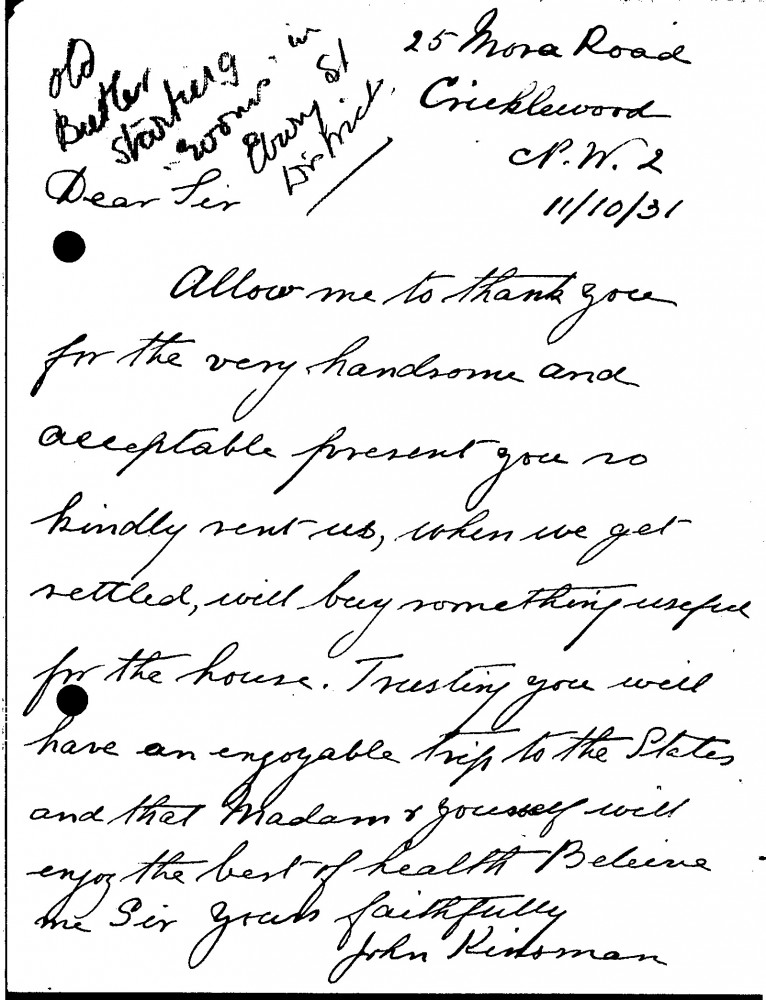 old
Butler
starting
rooms in
Ebury St
District
25 Mora Road
Cricklewood
N.W. 2
11/10/31
Dear Sir
Allow me to thank you
for the very handsome and
acceptable present you so
kindly sent us, when we get
settled, will buy something useful
for the house. Trusting you will
have an enjoyable trip to the States
and that Madam & yourself will
enjoy the best of health Beleive
me Sir yours faithfully
John Kinsman